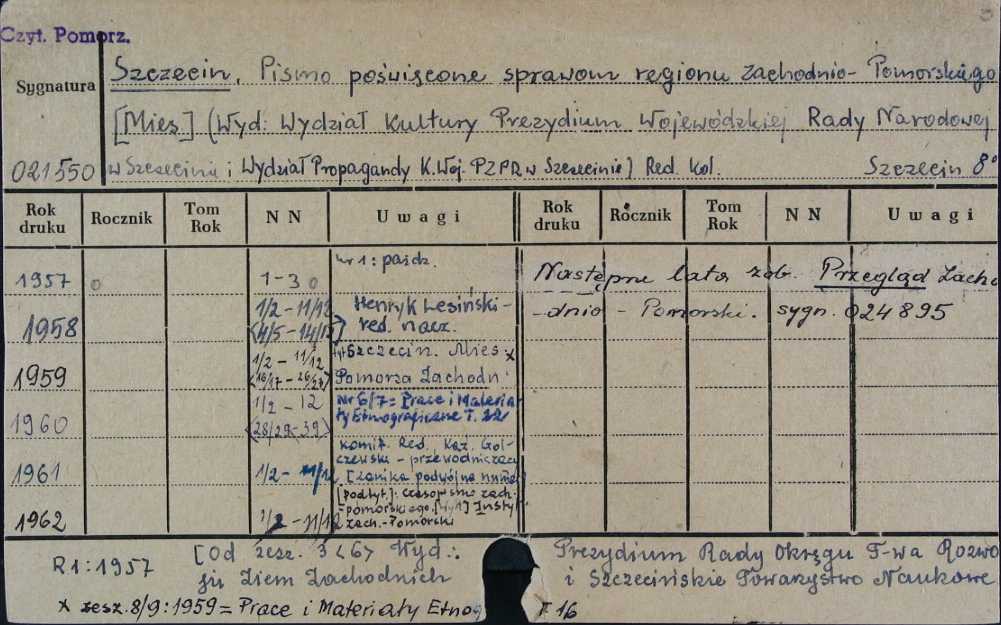 Czyt. Pomorz.
Sygnatura
Szczecin. Pismo poświęcone sprawom regionu zachodnio- Pomorskiego
[Mies] (Wyd: Wydział Kultury Prezydium Wojewódzkiej Rady Narodowej
021550 w Szczecinie i Wydział Propagandy K. Woj. PZPR w Szczecinie) Red. Kol. Szczecin 8°
Rok druku Rocznik Tom Rok NN Uwagi Rok druku Rocznik Tom Rok NN Uwagi
nr 1: paźdz.
1957 0 1-3 0 Następne lata zob. Przegląd Zacho
1/2 - 11/12 Henryk Lesiński - -dnio - Pomorski. sygn. 024895
1958 (4/5 - 14/15) red. nacz.
1/2 - 11/12 tyt Szczecin. Mies x
1959 (16/17 - 26/27) Pomorza Zachodn.
1/2 - 12 Nr 6/7 = Prace i Materia-
1960 (28/29-39) ły Etnograficzne T. 22
Komit. Red. Kaź. Gol-
czewski - przewodniczący
1961 1/2 - 11/12 [zanika podwójna numer
[podtyt]. czasopismo zach.
-pomorskiego. Instyt
1962 1/2 - 11/12 zach.-Pomorski
R1:1957 [Od zesz. 3<6> Wyd.: Prezydium Rady Okręgu T-wa Rozwo
ju Ziem Zachodnich i Szczecińskie Towarzystwo Naukowe
x zesz. 8/9:1959 = Prace i Materiały Etnog T 16